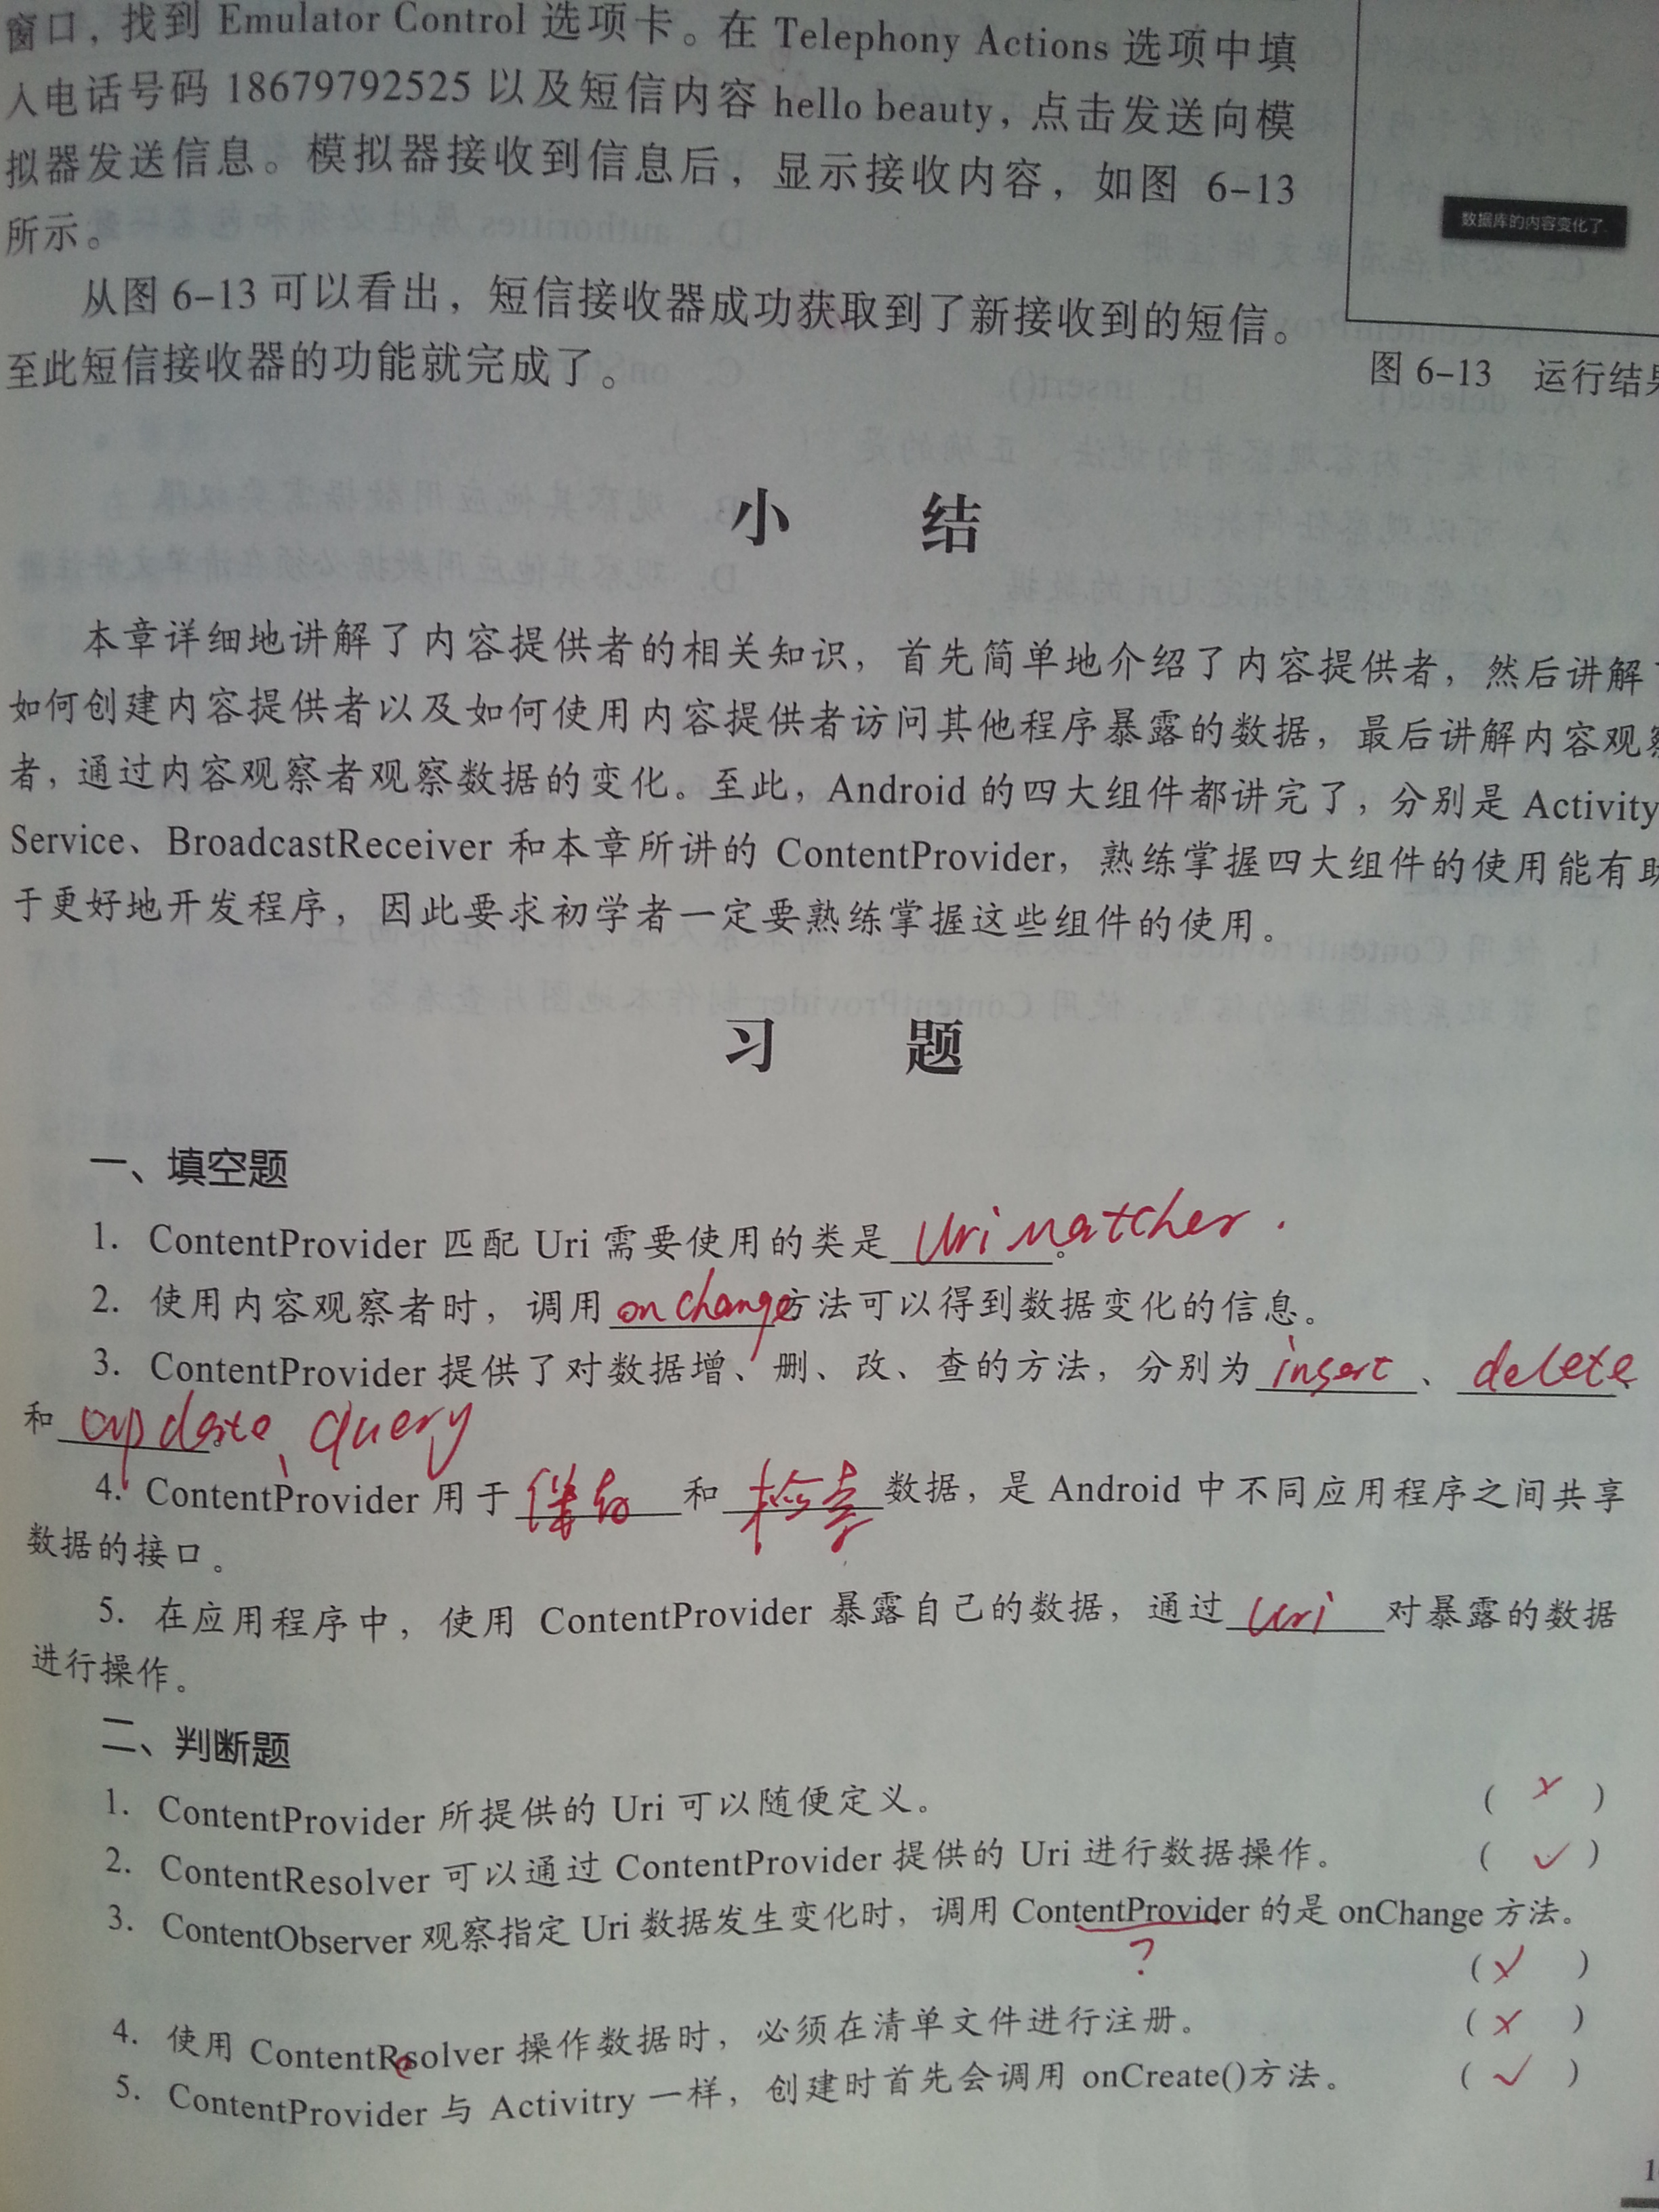 窗口，找到 Emulator Control 选项卡。在 Telephony Actions 选项中填
入电话号码 18679792525 以及短信内容 hello beauty，点击发送向模
拟器发送信息。模拟器接收到信息后，显示接收内容，如图 6-13
所示。
数据库的内容变化了.
从图 6-13 可以看出，短信接收器成功获取到了新接收到的短信。
至此短信接收器的功能就完成了。
图 6-13 运行结果
小 结
本章详细地讲解了内容提供者的相关知识，首先简单地介绍了内容提供者，然后讲解
如何创建内容提供者以及如何使用内容提供者访问其他程序暴露的数据，最后讲解内容观察
者，通过内容观察者观察数据的变化。至此，Android 的四大组件都讲完了，分别是 Activity
Service、BroadcastReceiver 和本章所讲的 ContentProvider，熟练掌握四大组件的使用能有助
于更好地开发程序，因此要求初学者一定要熟练掌握这些组件的使用。
习 题
一、填空题
1. ContentProvider 匹配 Uri 需要使用的类是 Uri Matcher.。
2. 使用内容观察者时，调用 on change 方法可以得到数据变化的信息。
3. ContentProvider 提供了对数据增、删、改、查的方法，分别为 insert 、 delete 、
和 update 、query
4. ContentProvider 用于 和 检索 数据，是 Android 中不同应用程序之间共享
数据的接口。
5. 在应用程序中，使用 ContentProvider 暴露自己的数据，通过 Uri 对暴露的数据
进行操作。
二、判断题
1. ContentProvider 所提供的 Uri 可以随便定义。 （ × ）
2. ContentResolver 可以通过 ContentProvider 提供的 Uri 进行数据操作。 （ ✓ ）
3. ContentObserver 观察指定 Uri 数据发生变化时，调用 ContentProvider 的是 onChange 方法。
?
（ ）
4. 使用 ContentResolver 操作数据时，必须在清单文件进行注册。 （ × ）
5. ContentProvider 与 Activitry 一样，创建时首先会调用 onCreate()方法。 （ ✓ ）